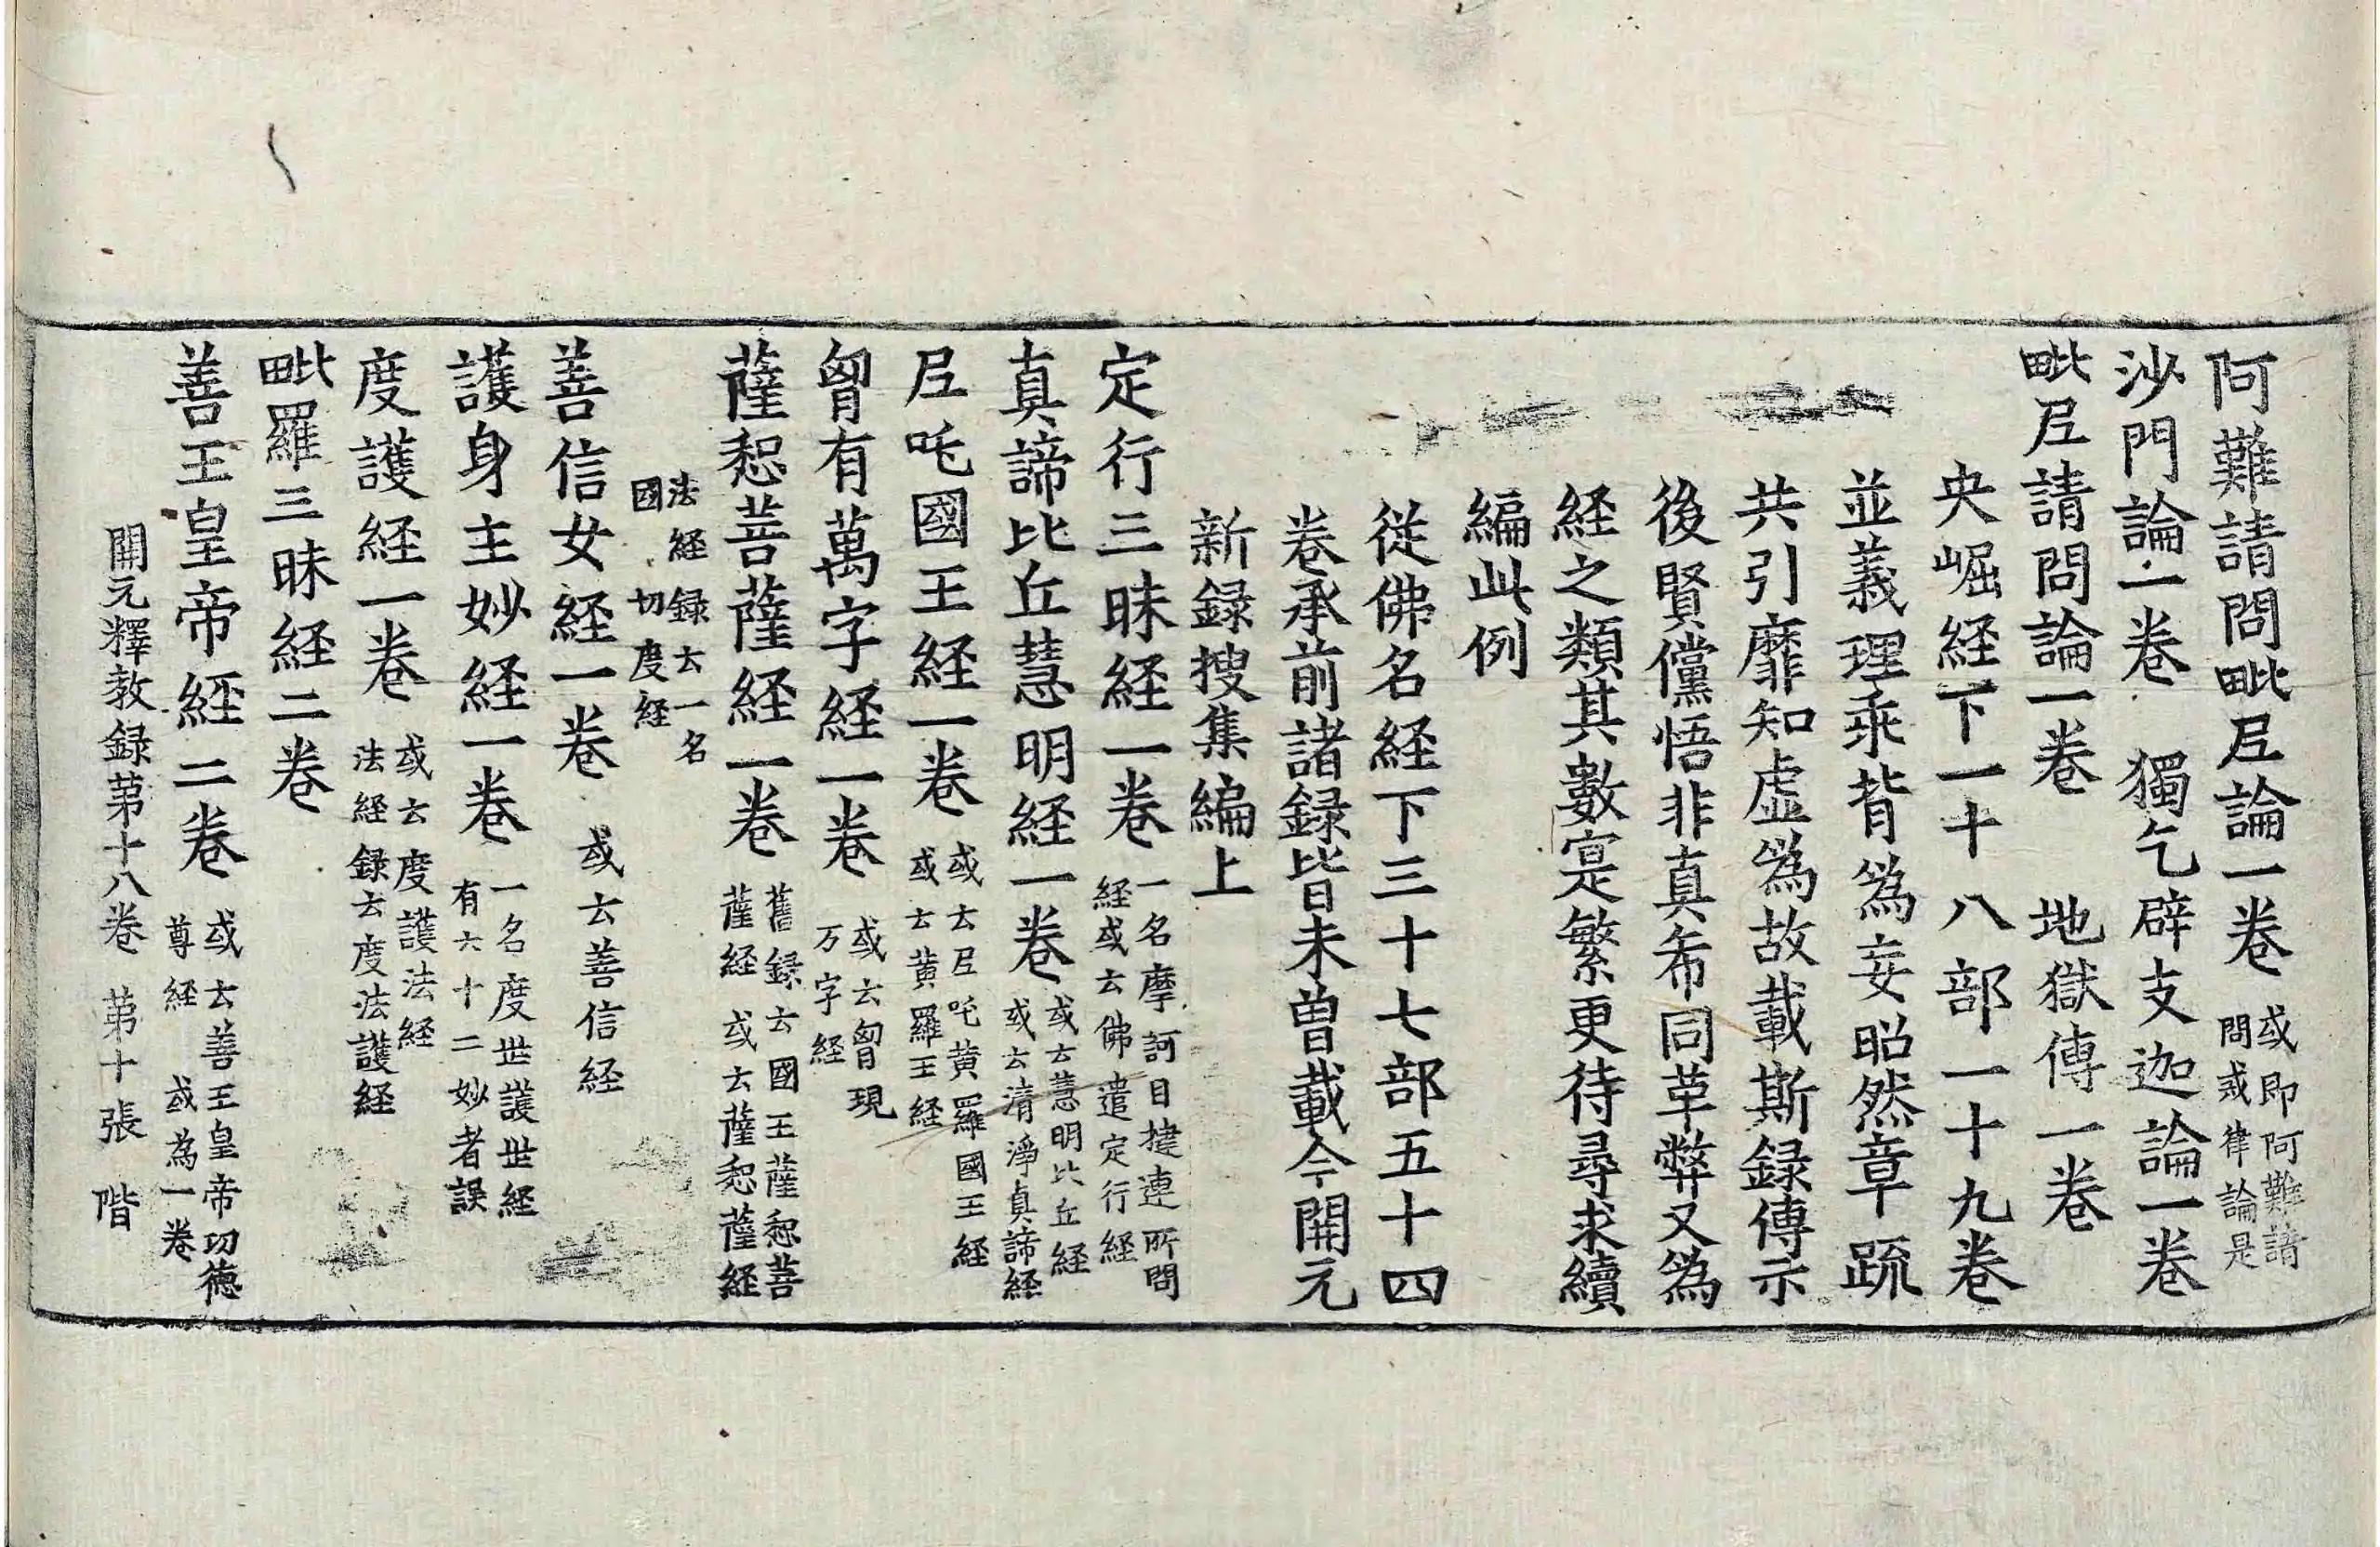 阿難請問毗尼論一卷 或即阿難請
問或律論是
沙門論一卷 獨乞辟支迦論一卷
毗尼請問論一卷 地獄傳一卷
央崛経下一十八部一十九卷
並義理乖背爲妄昭然章疏
共引靡知虛爲故載斯録傳示
後賢儻悟非真希同革弊又爲
経之類其數寔繁更待尋求續
編此例
従佛名経下三十七部五十四
卷承前諸録皆未曽載今開元
新録搜集編上
定行三昧経一卷 一名摩訶目揵連所問
経或云佛遣定行経
真諦比丘慧明経一卷 或云慧明比丘経
或云清淨真諦経
尼吒國王経一卷 或云尼吒黄羅國王経
或云黄羅王経
胷有萬字経一卷 或云胷現
万字経
薩惒菩薩経一卷 舊録云國王薩惒菩
薩経 或云薩惒薩経
法経録云一名
國 切度経
善信女経一卷 或云善信経
護身主妙経一卷 一名度世護世経
有六十二妙者誤
度護経一卷 或云度護法経
法経録云度法護経
毗羅三昧経二卷
善王皇帝經二卷 或云善王皇帝功徳
尊経 或為一卷
開元釋教録苐十八卷 苐十張 階